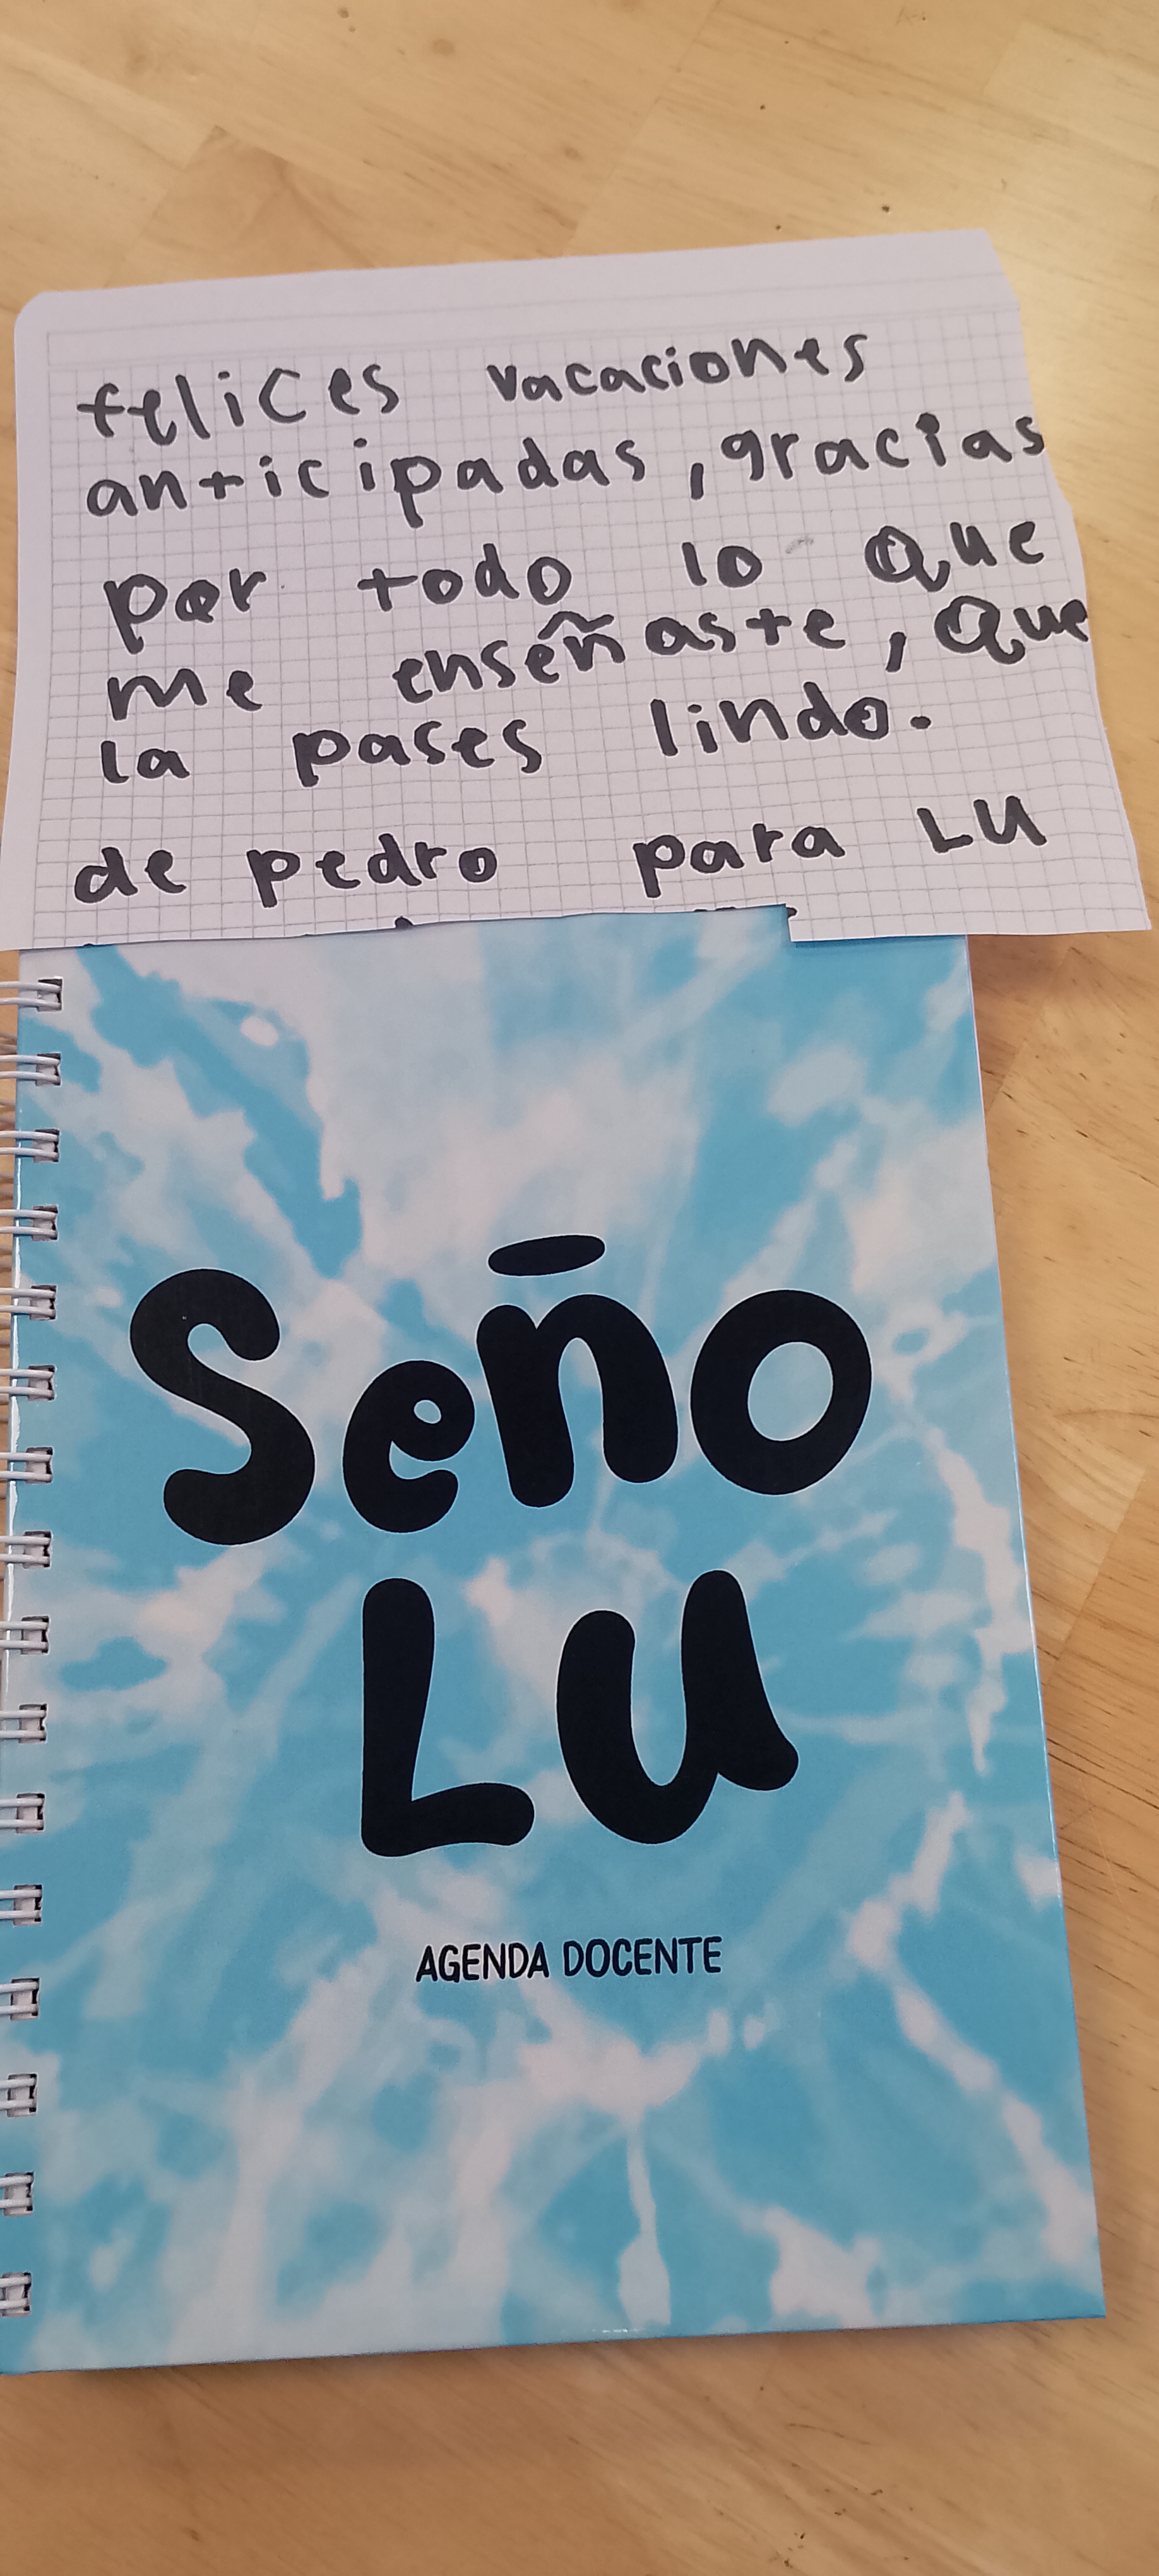 felices vacaciones
anticipadas, gracias
por todo lo Que
me enseñaste, Que
la pases lindo.
de pedro para LU
Seño
Lu
AGENDA DOCENTE